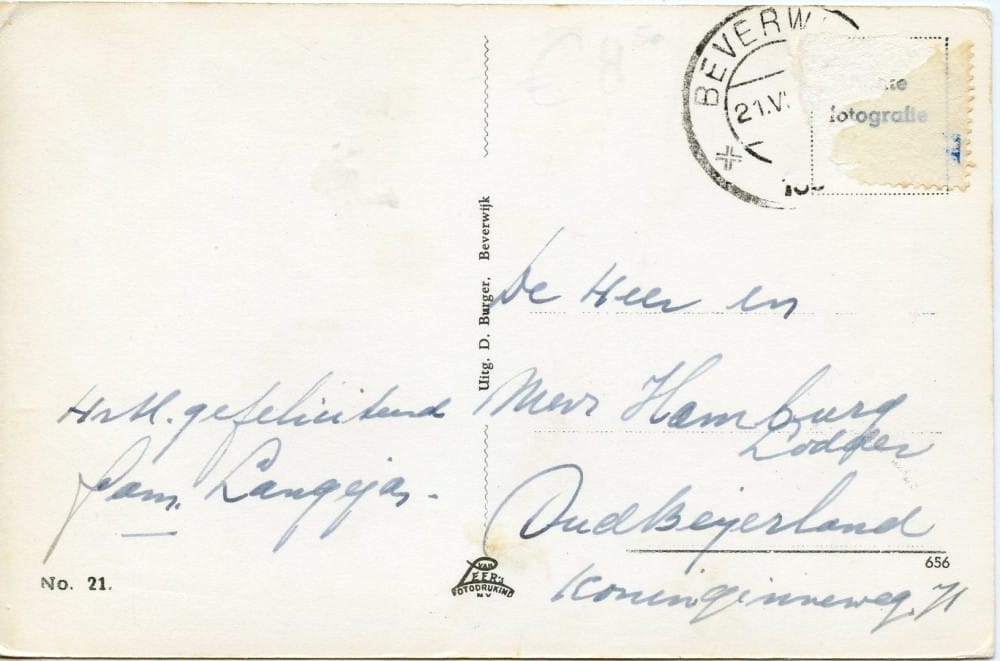 BEVERW
21.VI
te
fotografie
Uitg. D. Burger, Beverwijk
De Heer en
Mevr Hamburg
Lodder
Oud Beijerland
Koninginneweg. 71
656
Hrtl. gefeliciteerd
Fam. Langejas.
No. 21.
VAN
LEER'S
FOTODRUKIND
N.V.